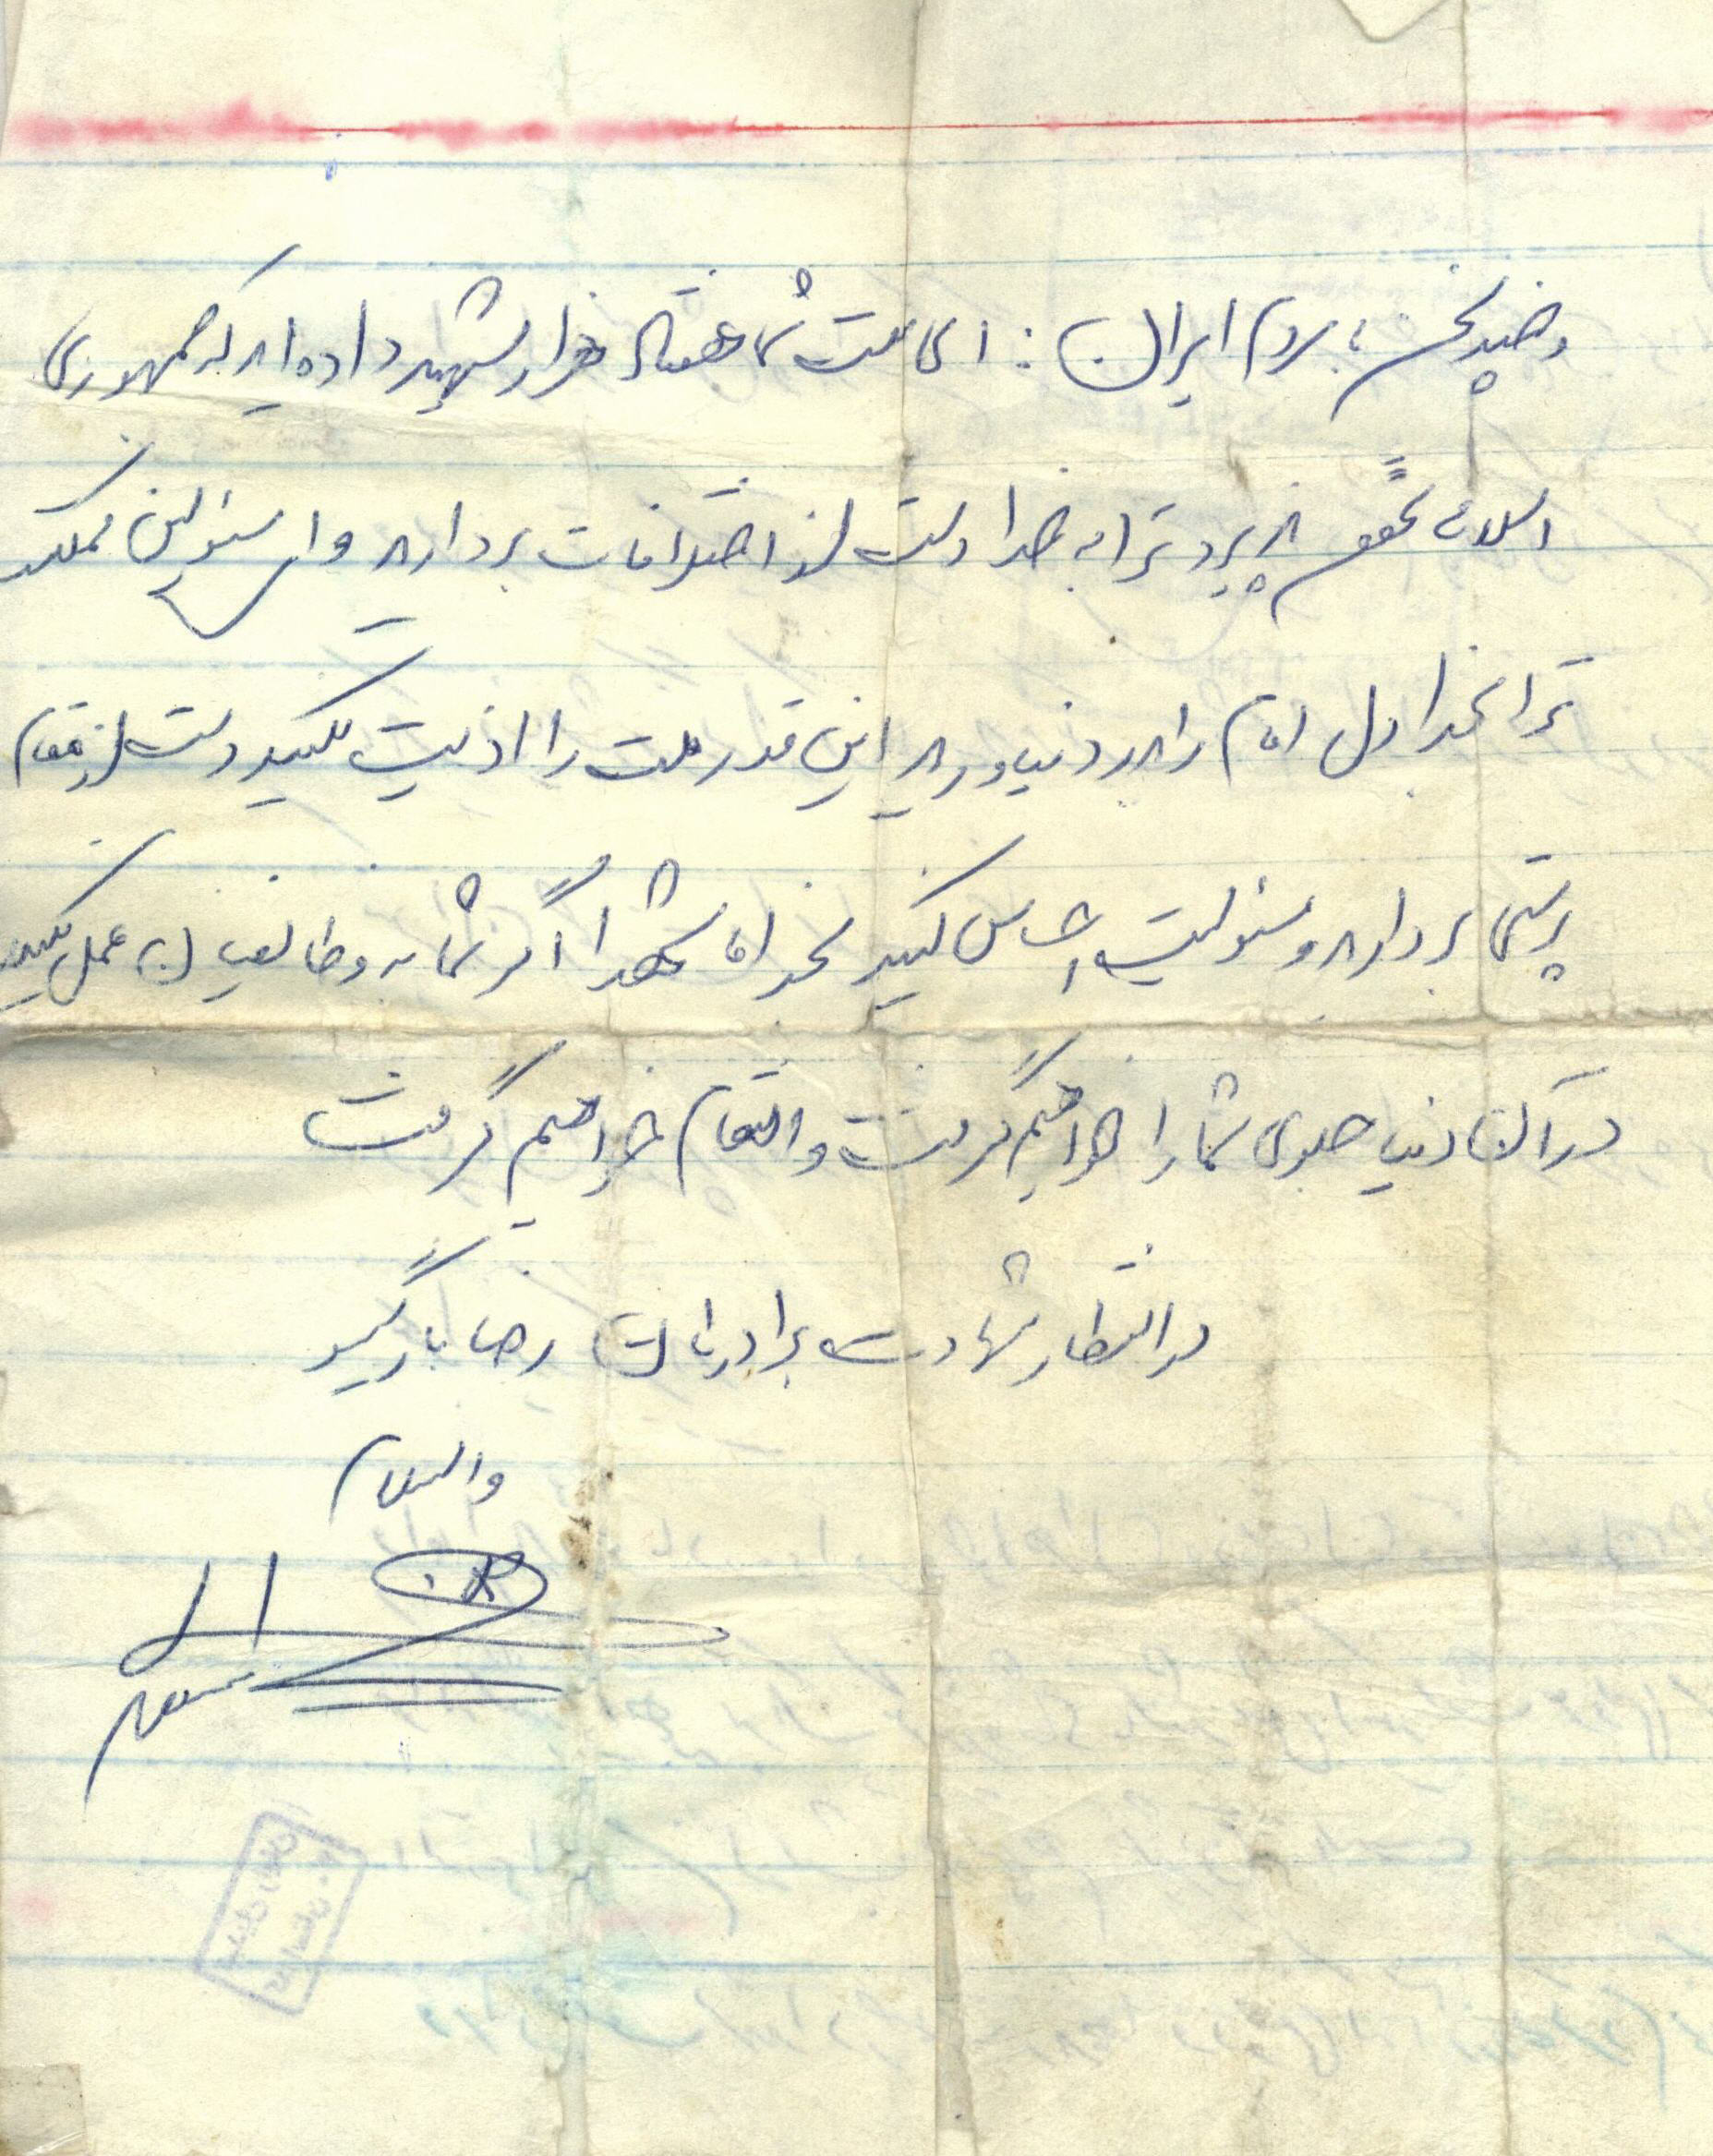 و چند سخن با مردم ایران : ای ملت شما هفتاد هزار شهید داده اید که جمهوری
اسلامی تحقق پذیرد ترا به خدا دست از اختلافات بردارید و ای مسئولین مملکت
ترا بخدا دل امام را بدرد نیاورید این قدر ملت را اذیت نکنید دست از مقام
پرستی بردارید و مسئولیت احساس کنید بخدا ما شهدا اگر شما به وظایف تان عمل نکنید
در آن دنیا جلوی شما را خواهیم گرفت و انتقام خواهیم گرفت
در انتظار شهادت برادرتان رضا
والسلام